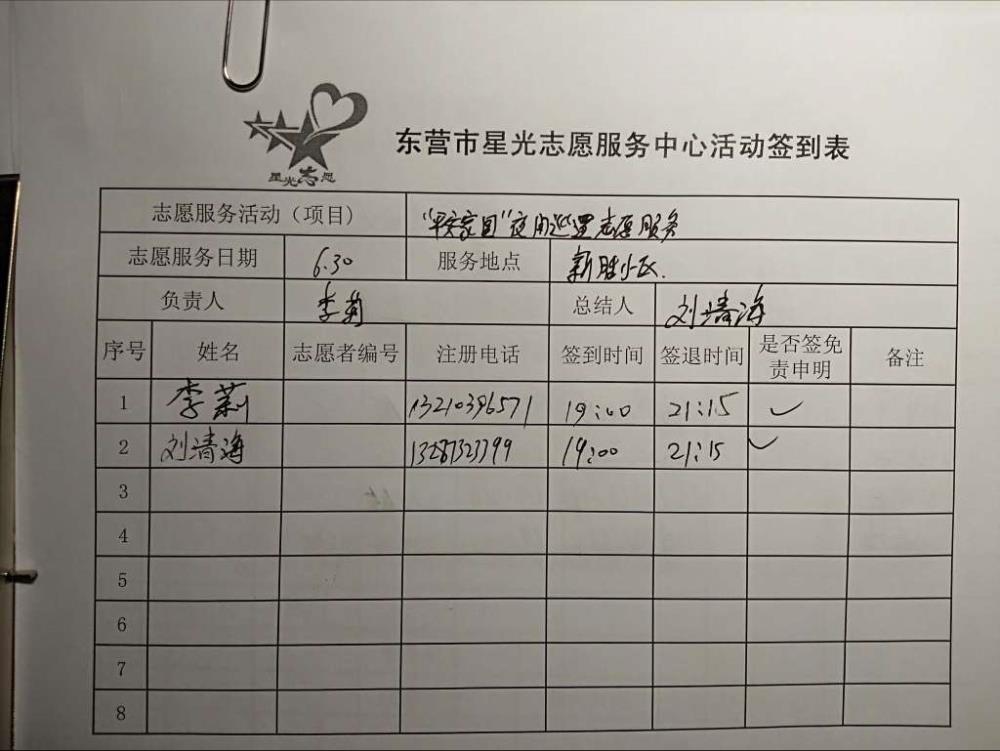 星光志愿
东营市星光志愿服务中心活动签到表
志愿服务活动（项目） “平安家园”夜间巡逻志愿服务
志愿服务日期 6.30 服务地点 新胜小区.
负责人 李莉 总结人 刘清海
序号 姓名 志愿者编号 注册电话 签到时间 签退时间 是否签免责申明 备注
1 李莉 13210396571 19:00 21:15 ✓
2 刘清海 13287323799 19:00 21:15 ✓
3
4
5
6
7
8